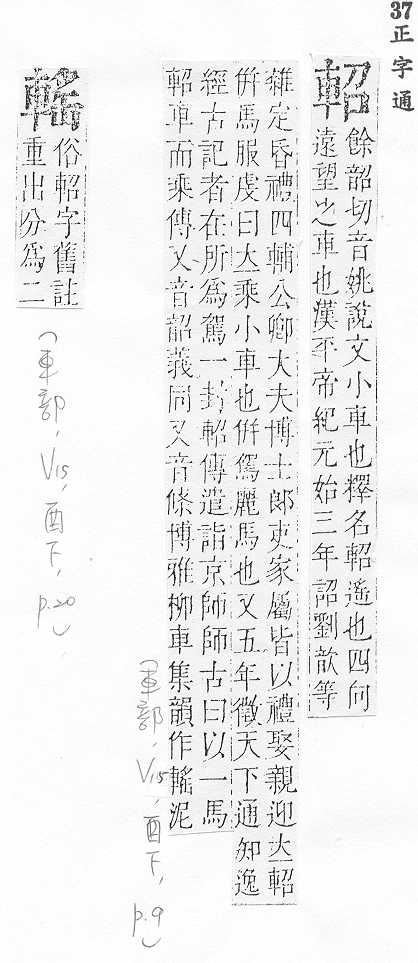 37正字通
軺
餘韶切音姚說文小車也釋名軺遙也四向
遠望之車也漢平帝紀元始三年詔劉歆等
雜定昏禮四輔公卿大夫博士郎吏家屬皆以禮娶親迎立軺
併馬服虔曰立乘小車也併駕麗馬也又五年徵天下通知逸
經古記者在所爲駕一封軺傳遣詣京師師古曰以一馬
軺車而乘傳又音韶義同又音條博雅柳車集韻作䡻泥
(車部, V15, 酉下, p.9)
䡻
俗軺字舊註
重出分爲二
(車部, V15, 酉下, p.20)